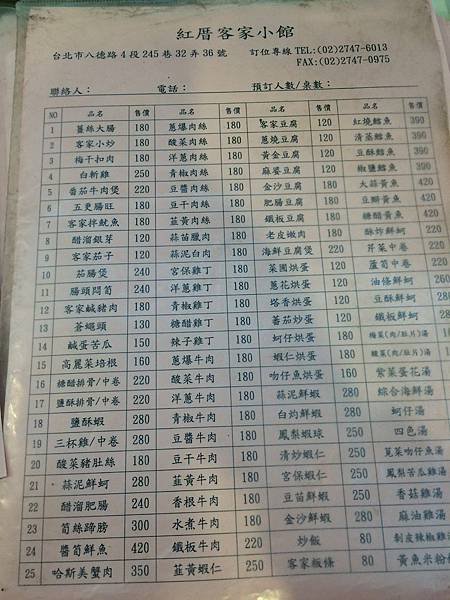 紅厝客家小館
台北市八德路4段245巷32弄36號 訂位專線TEL:(02)2747-6013
FAX:(02)2747-0975
聯絡人： 電話： 預訂人數/桌數：
NO 品名 售價 品名 售價 品名 售價 品名 售價
1 薑絲大腸 180 蔥爆肉絲 180 客家豆腐 120 紅燒鱈魚 390
2 客家小炒 180 酸菜肉絲 180 蔥燒豆腐 120 清蒸鱈魚 390
3 梅干扣肉 180 洋蔥肉絲 180 黃金豆腐 120 豆酥鱈魚 390
4 白斬雞 250 青椒肉絲 180 麻婆豆腐 120 椒鹽鱈魚 390
5 番茄牛肉煲 220 豆醬肉絲 180 金沙豆腐 180 大蒜黃魚 420
6 五更腸旺 180 豆干肉絲 180 肥腸豆腐 180 豆瓣黃魚 420
7 客家拌魷魚 180 韮黃肉絲 180 鐵板豆腐 180 糖醋黃魚 420
8 醋溜銀芽 120 蒜苗臘肉 180 老皮嫩肉 180 酥炸鮮蚵 220
9 客家茄子 120 蒜泥白肉 180 海鮮豆腐煲 220 芹菜中卷 220
10 茄腸煲 240 宮保雞丁 180 菜圃烘蛋 120 蘆筍中卷 220
11 腸頭悶筍 240 洋蔥雞丁 180 蔥花烘蛋 120 油條鮮蚵
12 客家鹹豬肉 180 青椒雞丁 180 塔香烘蛋 120 豆酥鮮蚵
13 蒼蠅頭 130 糖醋雞丁 180 番茄炒蛋 120 鐵板鮮蚵
14 鹹蛋苦瓜 150 辣子雞丁 180 蚵仔烘蛋 160 梅菜(肉/肚片)湯
15 高麗菜培根 160 蔥爆牛肉 180 蝦仁烘蛋 160 酸菜(肉/肚片)湯
16 糖醋排骨/中卷 220 酸菜牛肉 180 吻仔魚烘蛋 160 紫菜蛋花湯
17 鹽酥排骨/中卷 220 洋蔥牛肉 180 蒜泥鮮蝦 280 綜合海鮮湯
18 鹽酥蝦 280 青椒牛肉 180 白灼鮮蝦 280 蚵仔湯
19 三杯雞/中卷 280 豆醬牛肉 180 鳳梨蝦球 250 四色湯
20 酸菜豬肚絲 180 豆干牛肉 180 清炒蝦仁 250 莧菜吻仔魚湯
21 蒜泥鮮蚵 280 韮黃牛肉 180 宮保蝦仁 250 鳳梨苦瓜雞湯
22 醋溜肥腸 240 香根牛肉 180 豆苗蝦仁 280 香菇雞湯
23 筍絲蹄膀 300 水煮牛肉 200 金沙鮮蝦 280 麻油雞湯
24 醬筍鮮魚 420 鐵板牛肉 220 炒飯 80 剝皮辣椒雞湯
25 哈斯美蟹肉 350 韮黃蝦仁 250 客家粄條 80 黃魚米粉